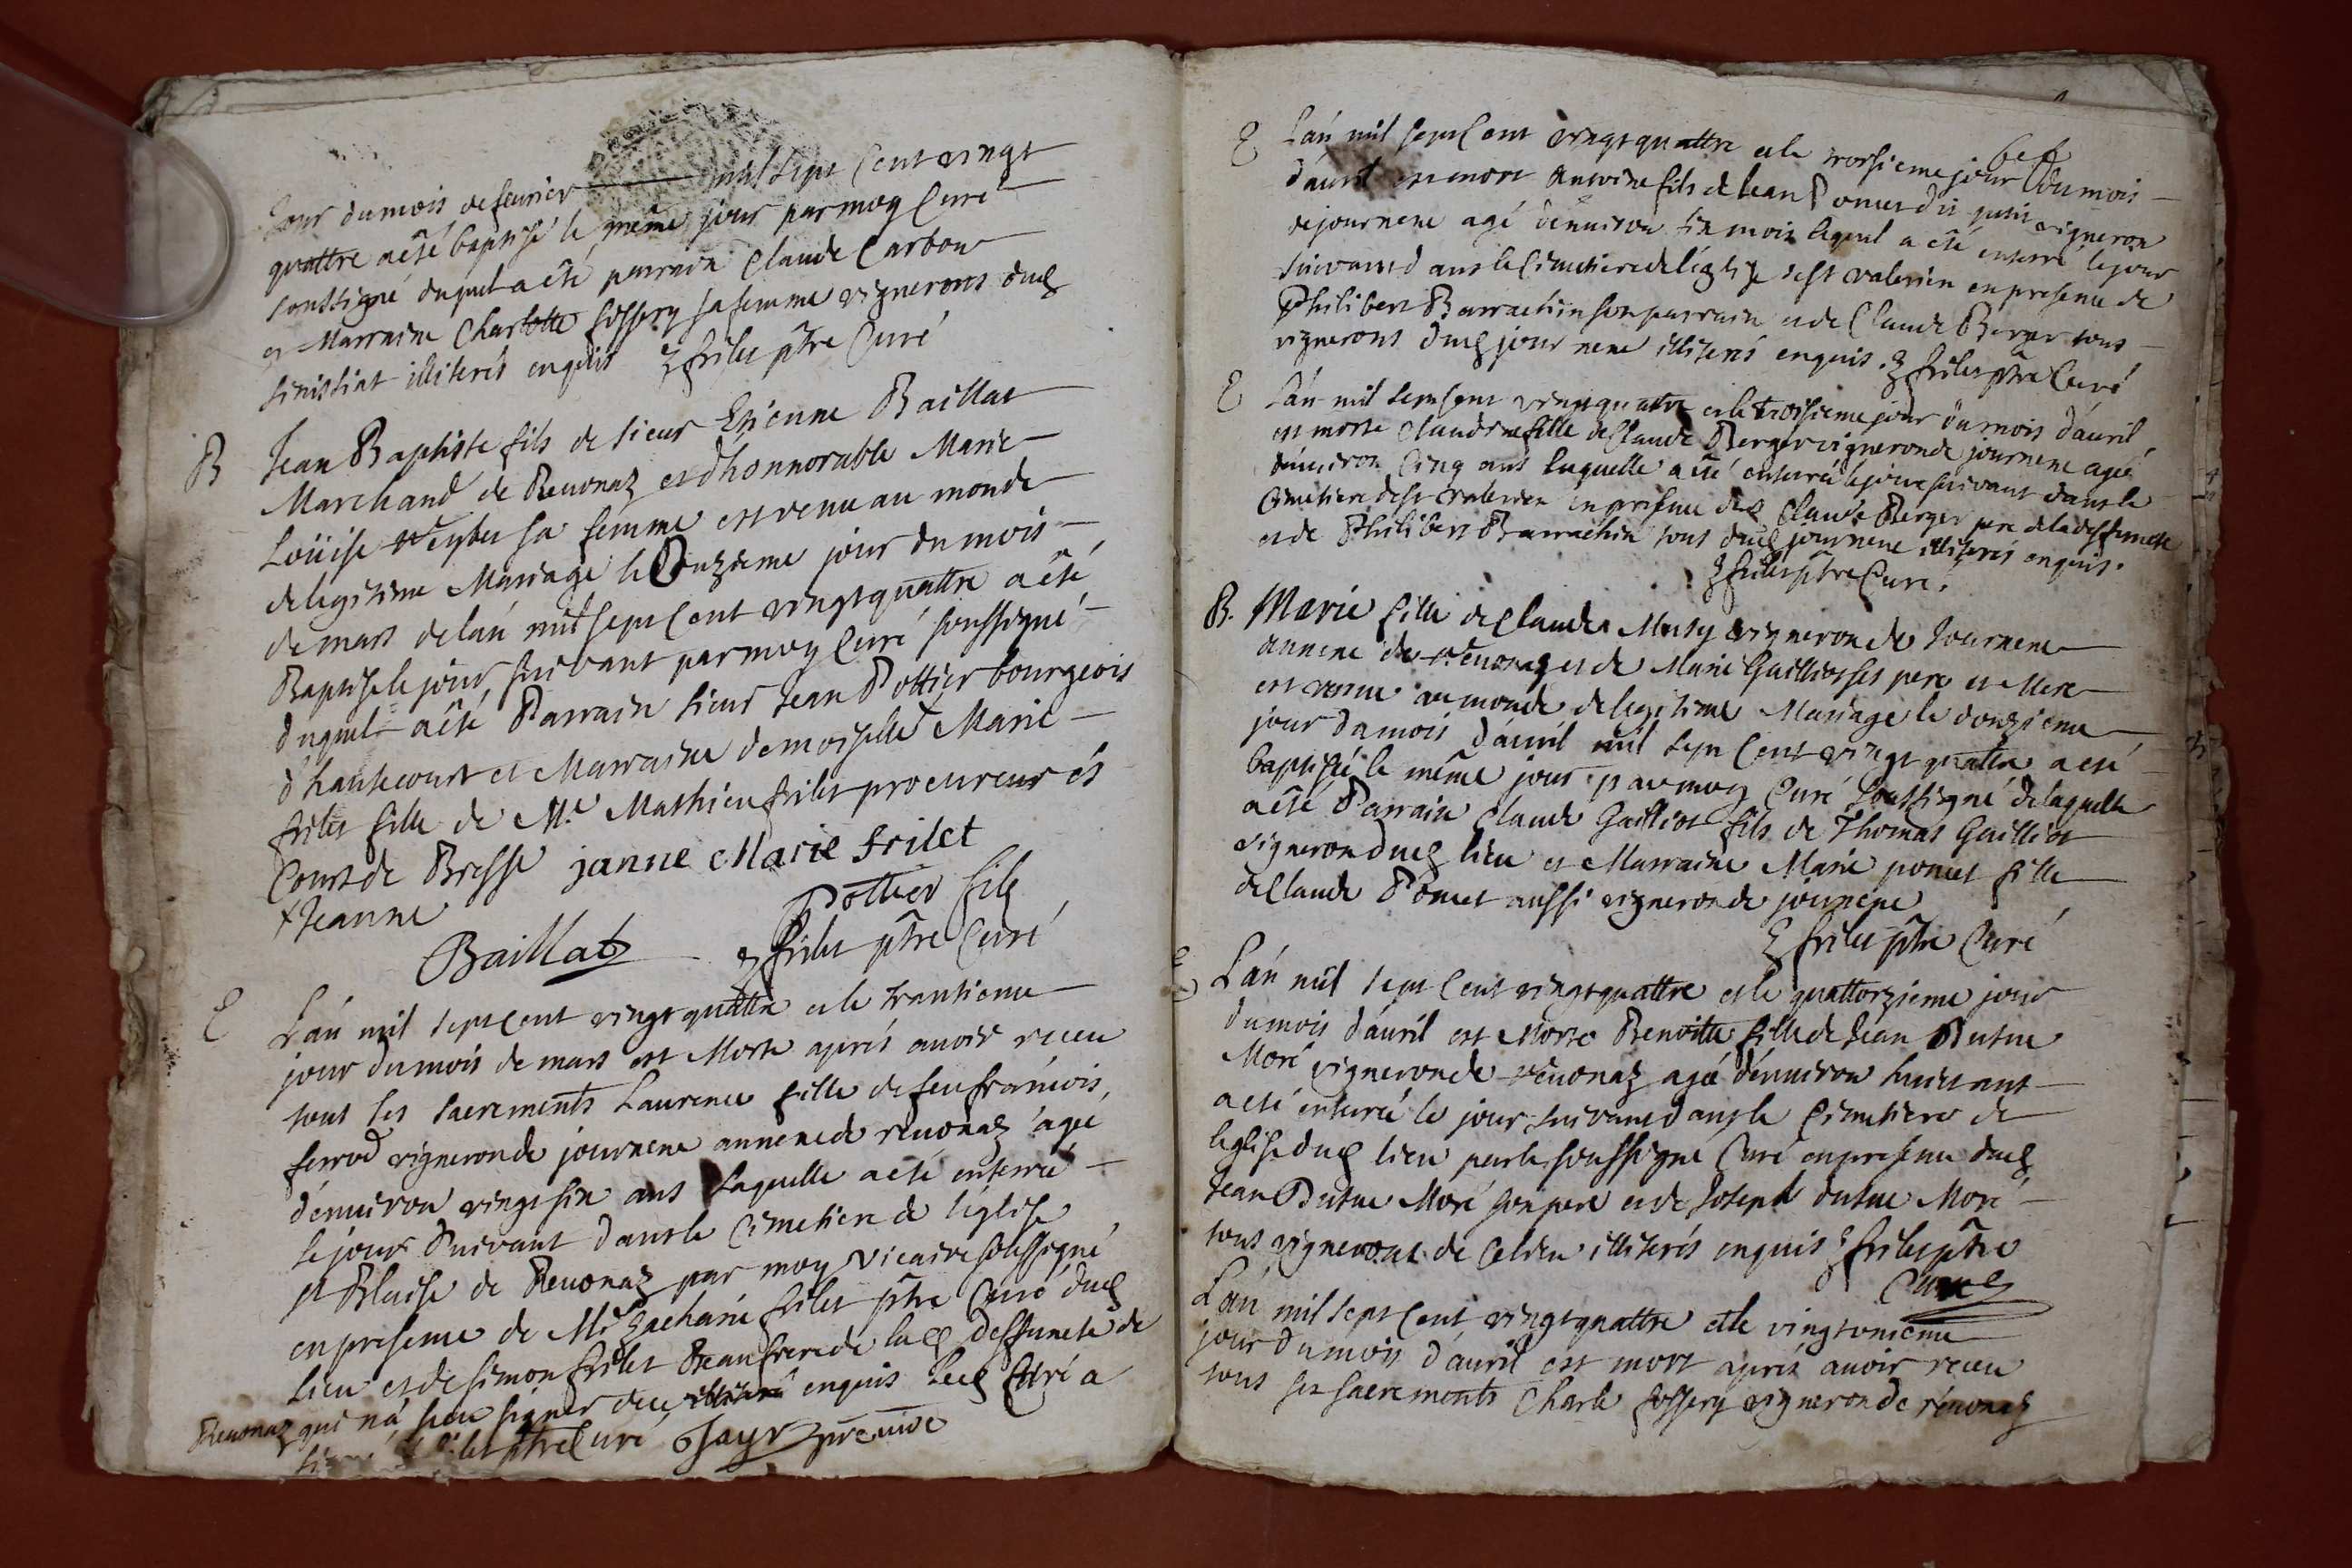 jour du mois de feurier mil sept Cent vingt
quattre a été baptisé le même jour par moy Curé
soussigné duquel a été parrain Claude Carbon
et Marraine Charlotte fossery sa femme vignerons dud
illiterés enquis Z frilet ptre Curé
B Jean Baptiste fils de sieur Etienne Baillat
Marchand de Reuonaz et d'honnorable Marie
Loüise sa femme est venu au monde
de legitime Mariage le Onzieme jour du mois
de mars de l'an mil sept Cent vingt quattre a été
Baptisé le jour suivant par moy Curé soussigné
duquel a été Parrain sieur Jean Pottier bourgeois
d'hautecourt et Marraine demoiselle + Marie
frilet fille de Me Mathieu frilet procureur és
Cours de Bresse janne Marie frilet
+ Jeanne
Pottier fils
Baillat Z frilet ptre Curé
E L'an mil sept Cent vingt quattre et le trantieme
jour du mois de mars est Morte aprés auoir receu
tous ses sacrements Laurence fille de feu françois
ferrod vigneron de journene annexe de reuonaz agée
d'enuiron vingt six ans laquelle a été enterrée
le jour suivant dans le Cimetiere de l'église
st Blaise de Reuonaz par moy vicaire soussigné
en presence de Mre Zacharie frilet ptre Curé dud
lieu et de simon frilet Beaufrere de lad deffuncte de
Reuonaz qui n'a sceu signer enquis Led Curé a
frilet ptre Curé Jayr
bef
E L'an mil sept Cent vingt quattre et le troisieme jour du mois
d'auril est mort Antoine fils de Jean Pomet dit petit vigneron
de journene agé d'enuiron six mois lequel a été enterré le jour
suivant dans le Cimetiere de l'église de st valerien en presence de
Philibert Barrachin son parrain et de Claude Berger tous
vignerons dud journene illiterés enquis. Z frilet ptre Curé
E L'an mil sept Cent vingt quattre et le troisieme jour du mois d'auril
est morte Claudine fille de Claude Berger vigneron de journene agée
d'enuiron Cinq ans laquelle a été enterrée le jour suivant dans le
Cimetiere de st valerien en presence dud Claude Berger pere de la deffuncte
et de Philibert Barrachin tous dud journene illiterés enquis.
Z frilet ptre Curé.
B. Marie fille de Claude Musy vigneron de Journene
annexe de reuonaz et de Marie Gailliot ses pere et Mere
est venue au monde de legitime Mariage le douzieme
jour du mois d'auril mil sept Cent vingt quattre a été
baptisée le même jour par moy Curé soussigné de laquelle
a été Parrain Claude Gailliot fils de Thomas Gailliot
vigneron dud lieu et Marraine Marie pomet fille
de Claude Pomet aussi vigneron de journene
Z frilet ptre Curé
E L'an mil sept Cent vingt quattre et le quattorzieme jour
du mois d'auril est Morte Benoitte fille de Jean Dutue
Moré vigneron de reuonaz agée d'enuiron huict ans
a été enterrée le jour suivant dans le Cimetiere de
leglise dud lieu par le soussigné Curé en presence dud
Jean Dutue Moré son pere et de Joseph dutue Moré
tous vignerons de Celieu illiterés enquis Z frilet ptre
Curé
L'an mil sept Cent vingt quattre et le vingt onieme
jour du mois d'auril est mort aprés auoir receu
tous ses sacrements Charle fossery vigneron de reuonaz